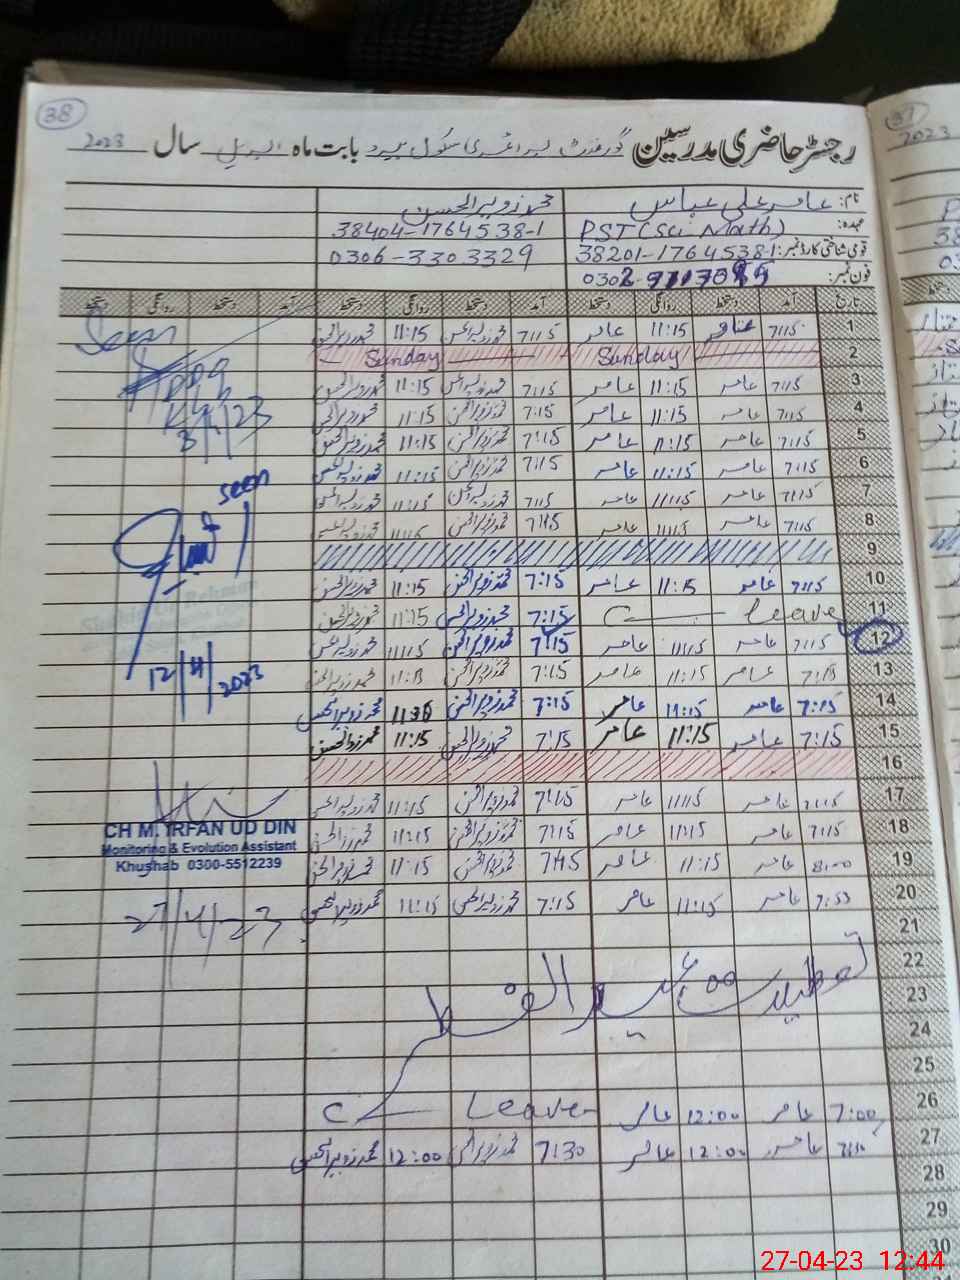 38
رجسٹر حاضری مدرسین گورنمنٹ پرائمری سکول بابت ماہ اپریل سال 2023
37
2023
نام: عامر علی عباس محمد زوہیر الحسن
عہدہ: PST (Sci Math) 38404-1764538-1
قومی شناختی کارڈ نمبر: 38201-1764538-1 0306-3303329
فون نمبر:
تاریخ آمد دستخط روانگی دستخط آمد دستخط روانگی دستخط آمد دستخط روانگی دستخط
1 7:15 عامر 11:15 عامر 7:15 محمد زوہیر الحسن 11:15 محمد زوہیر الحسن
Seen
2 Sunday Sunday
3 7:15 عامر 11:15 عامر 7:15 محمد زوہیر الحسن 11:15 محمد زوہیر الحسن
4 7:15 عامر 11:15 عامر 7:15 محمد زوہیر الحسن 11:15 محمد زوہیر الحسن
5 7:15 عامر 11:15 عامر 7:15 محمد زوہیر الحسن 11:15 محمد زوہیر الحسن
6 7:15 عامر 11:15 عامر 7:15 محمد زوہیر الحسن 11:15 محمد زوہیر الحسن
7 7:15 عامر 11:15 عامر 7:15 محمد زوہیر الحسن 11:15 محمد زوہیر الحسن
seen
8 7:15 عامر 11:15 عامر 7:15 محمد زوہیر الحسن 11:15 محمد زوہیر الحسن
9
10 7:15 عامر 11:15 عامر 7:15 محمد زوہیر الحسن 11:15 محمد زوہیر الحسن
11 Leave 7:15 محمد زوہیر الحسن 11:15 محمد زوہیر الحسن
12 7:15 عامر 11:15 عامر 7:15 محمد زوہیر الحسن 11:15 محمد زوہیر الحسن
12/4/2023
13 7:15 عامر 11:15 عامر 7:15 محمد زوہیر الحسن محمد زوہیر الحسن
14 7:15 عامر 11:15 عامر 7:15 محمد زوہیر الحسن محمد زوہیر الحسن
15 7:15 عامر 11:15 عامر 7:15 محمد زوہیر الحسن 11:15 محمد زوہیر الحسن
16
17 7:15 عامر 11:15 عامر 7:15 محمد زوہیر الحسن 11:15 محمد زوہیر الحسن
CH M. IRFAN UD DIN
Monitoring & Evolution Assistant
Khushab 0300-5512239
27/4/23
18 7:15 عامر 11:15 عامر 7:15 محمد زوہیر الحسن 11:15 محمد زوہیر الحسن
19 8:00 عامر 11:15 عامر 7:15 محمد زوہیر الحسن 11:15 محمد زوہیر الحسن
20 7:53 عامر 11:15 عامر 7:15 محمد زوہیر الحسن 11:15 محمد زوہیر الحسن
21
22
تعطیلات عید الفطر
23
24
25
26 7:00 عامر 12:00 عامر Leave
27 عامر 12:00 عامر 7:30 محمد زوہیر الحسن 12:00 محمد زوہیر الحسن
28
29
30
27-04-23 12:44